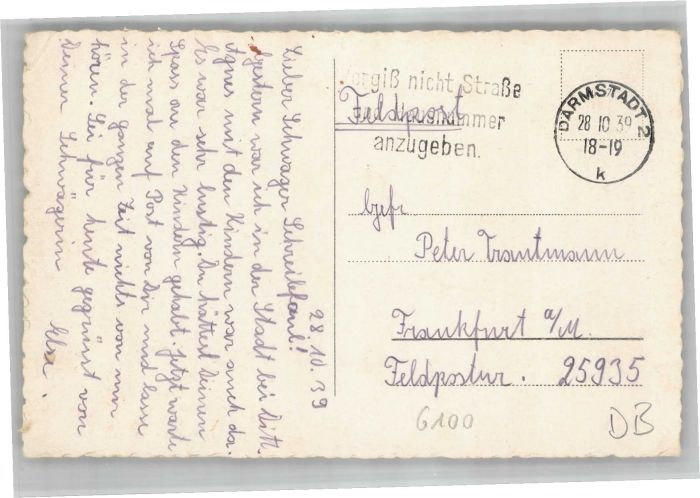 28.10.39
Lieber Schwager Schreibfaul!
Gestern war ich in der Stadt bei Dill.
Agnes mit den Kindern war auch da.
Es war sehr lustig. Du hättest Deinen
Spass an den Kindern gehabt. Jetzt warte
ich mal auf Post von Dir und lasse
in der ganzen Zeit nichts von mir
hören. Sei für heute gegrüsst von
Deiner Schwägerin
Vergiß nicht Straße
und Hausnummer
anzugeben.
Feldpost
DARMSTADT 2
28.10.39
18-19
k
Gefr
Peter Trautmann
Frankfurt a/M.
Feldpostnr. 25935
6100
DB